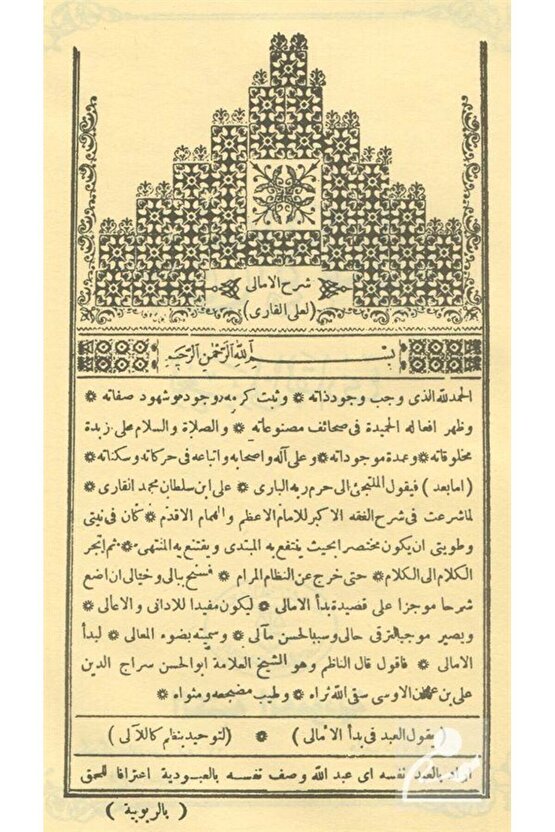 شرح الامالى
(لعلى القارى)
بسم الله الرحمن الرحيم
الحمد لله الذى وجب وجود ذاته ❋ وثبت كرمه وجود هو شهود صفاته ❋
وظهر افعاله الحميدة فى صحائف مصنوعاته ❋ والصلاة والسلام على زبدة
مخلوقاته ❋ وعمدة موجوداته ❋ وعلى آله واصحابه واتباعه فى حركاته وسكناته ❋
(امابعد) فيقول الملتجئ الى حرم ربه البارى ❋ على ابن سلطان محمد القارى ❋
لما شرعت فى شرح الفقه الاكبر للامام الاعظم والهمام الاقدم ❋ كان فى نيتى
وطويتى ان يكون مختصرا بحيث ينتفع به المبتدى ويقتنع به المنتهى ❋ ثم انجر
الكلام الى الكلام ❋ حتى خرج عن النظام المرام ❋ فسنح ببالى وخيالى ان اضع
شرحا موجزا على قصيدة بدأ الامالى ❋ ليكون مفيدا للادانى والاعالى ❋
ويصير موجبا لترقى حالى وسببا لحسن مآلى ❋ وسميته بضوء المعالى ❋ لبدأ
الامالى ❋ فاقول قال الناظم وهو الشيخ العلامة ابو الحسن سراج الدين
على بن عثمان الاوسى سقى الله ثراه ❋ وطيب مضجعه ومثواه ❋
(يقول العبد فى بدأ الامالى) ❋ (لتوحيد بنظم كاللآلى)
اراد بالعبد نفسه اى عبد الله وصف نفسه بالعبودية اعترافا للحق
(بالربوبية)